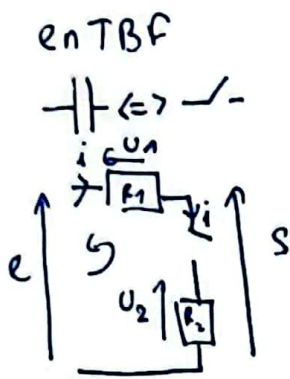 en TBF
<=>
i U1
R1 i
e S
U2 R2